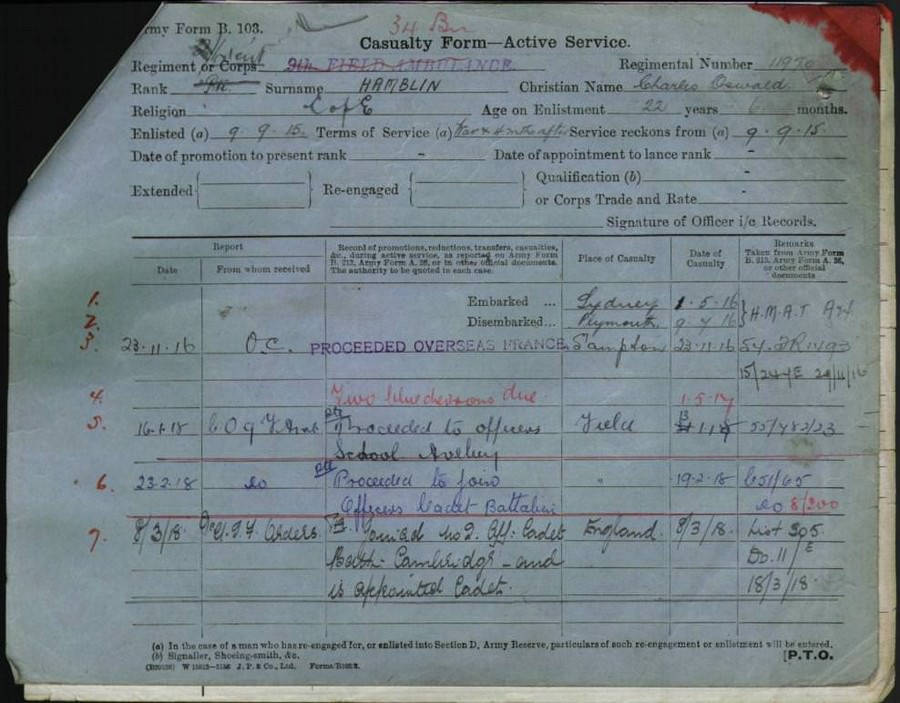 Army Form B. 103.
34 Bn
Casualty Form—Active Service.
Regiment or Corps 9th FIELD AMBULANCE. Regimental Number
Rank Pte. Surname HAMBLIN Christian Name Charles Oswald.
Religion C of E Age on Enlistment 22 years 6 months.
Enlisted (a) 9.9.15. Terms of Service (a) War & 4 mths after Service reckons from (a) 9.9.15.
Date of promotion to present rank - Date of appointment to lance rank -
Extended Re-engaged Qualification (b) -
or Corps Trade and Rate -
Signature of Officer i/c Records.
Report
Date
From whom received
Record of promotions, reductions, transfers, casualties, &c., during active service, as reported on Army Form B. 213, Army Form A. 36, or in other official documents. The authority to be quoted in each case.
Place of Casualty
Date of Casualty
Remarks
Taken from Army Form B. 213, Army Form A. 36, or other official documents
1. Embarked ... Sydney 1.5.16 H.M.A.T
2. Disembarked ... Plymouth 9.7.16
3. 23.11.16 O.C. PROCEEDED OVERSEAS FRANCE. S'ampton 23.11.16
4. Two blue chevrons due 1.5.17
5. 16.1.18 Proceeded to officers Field 55/482/23
School Aveluy
6. 23.2.18 do Proceeded to join " 19.2.18 651/65
Officers Cadet Battalion do 8/200
7. 8/3/18. Orders. Joined No 2. Off: Cadet England. 8/3/18. List 305
Battn. Cambridge - and Do. 11/E
is appointed Cadet. 18/3/18.
(a) In the case of a man who has re-engaged for, or enlisted into Section D, Army Reserve, particulars of such re-engagement or enlistment will be entered.
(b) Signaller, Shoeing-smith, &c.
J. P. & Co., Ltd.
[P.T.O.